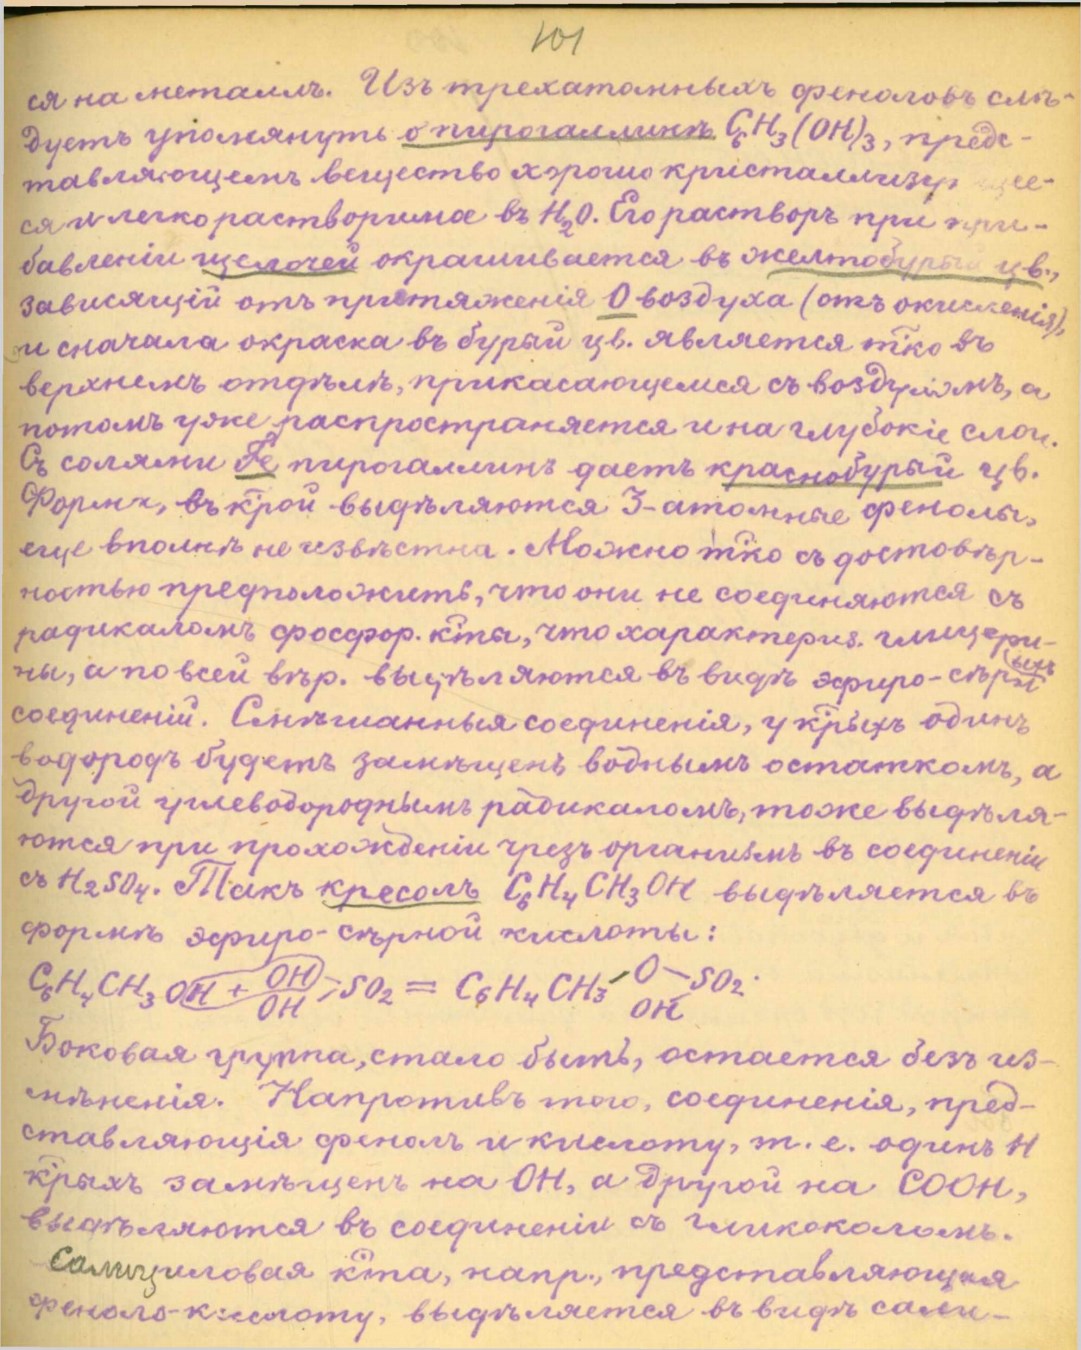 101
ся на металлъ. Изъ трехатомныхъ феноловъ слѣ-
дуетъ упомянуть о пирогаллинѣ C6H3(OH)3, предс-
тавляющемъ вещество хорошо кристаллизую щее-
ся и легко растворимое въ H2O. Его растворъ при при-
бавленіи щелочей окрашивается въ желтобурый цв.,
зависящій отъ притяженія O воздуха (отъ окисленія),
и сначала окраска въ бурый цв. является тко въ
верхнемъ отдѣлѣ, прикасающемся съ воздухомъ, а
потомъ уже распространяется и на глубокіе слои.
Съ солями Fe пирогаллинъ даетъ краснобурый цв.
Форма, въ крой выдѣляются 3-атомные фенолы,
еще вполнѣ не извѣстна. Можно тко съ достовѣр-
ностью предположить, что они не соединяются съ
радикаломъ фосфор. кты, что характериз. глицери-
ны, а по всей вѣр. выдѣляются въ видѣ эфиро-сѣрныхъ
соединеній. Смѣшанныя соединенія, у крыхъ одинъ
водородъ будетъ замѣщенъ воднымъ остаткомъ, а
другой углеводороднымъ радикаломъ, тоже выдѣля-
ются при прохожденіи чрезъ организмъ въ соединеніи
съ H2SO4. Такъ кресолъ C6H4CH3OH выдѣляется въ
формѣ эфиро-сѣрной кислоты:
C6H4CH3 OH + OH OH > SO2 = C6H4CH3 O OH SO2.
Боковая группа, стало быть, остается безъ из-
мѣненія. Напротивъ того, соединенія, пред-
ставляющія фенолъ и кислоту, т. е. одинъ H
крыхъ замѣщенъ на OH, а другой на COOH,
выдѣляются въ соединеніи съ гликоколомъ.
Салициловая кта, напр., представляющая
феноло-кислоту, выдѣляется въ видѣ сали-